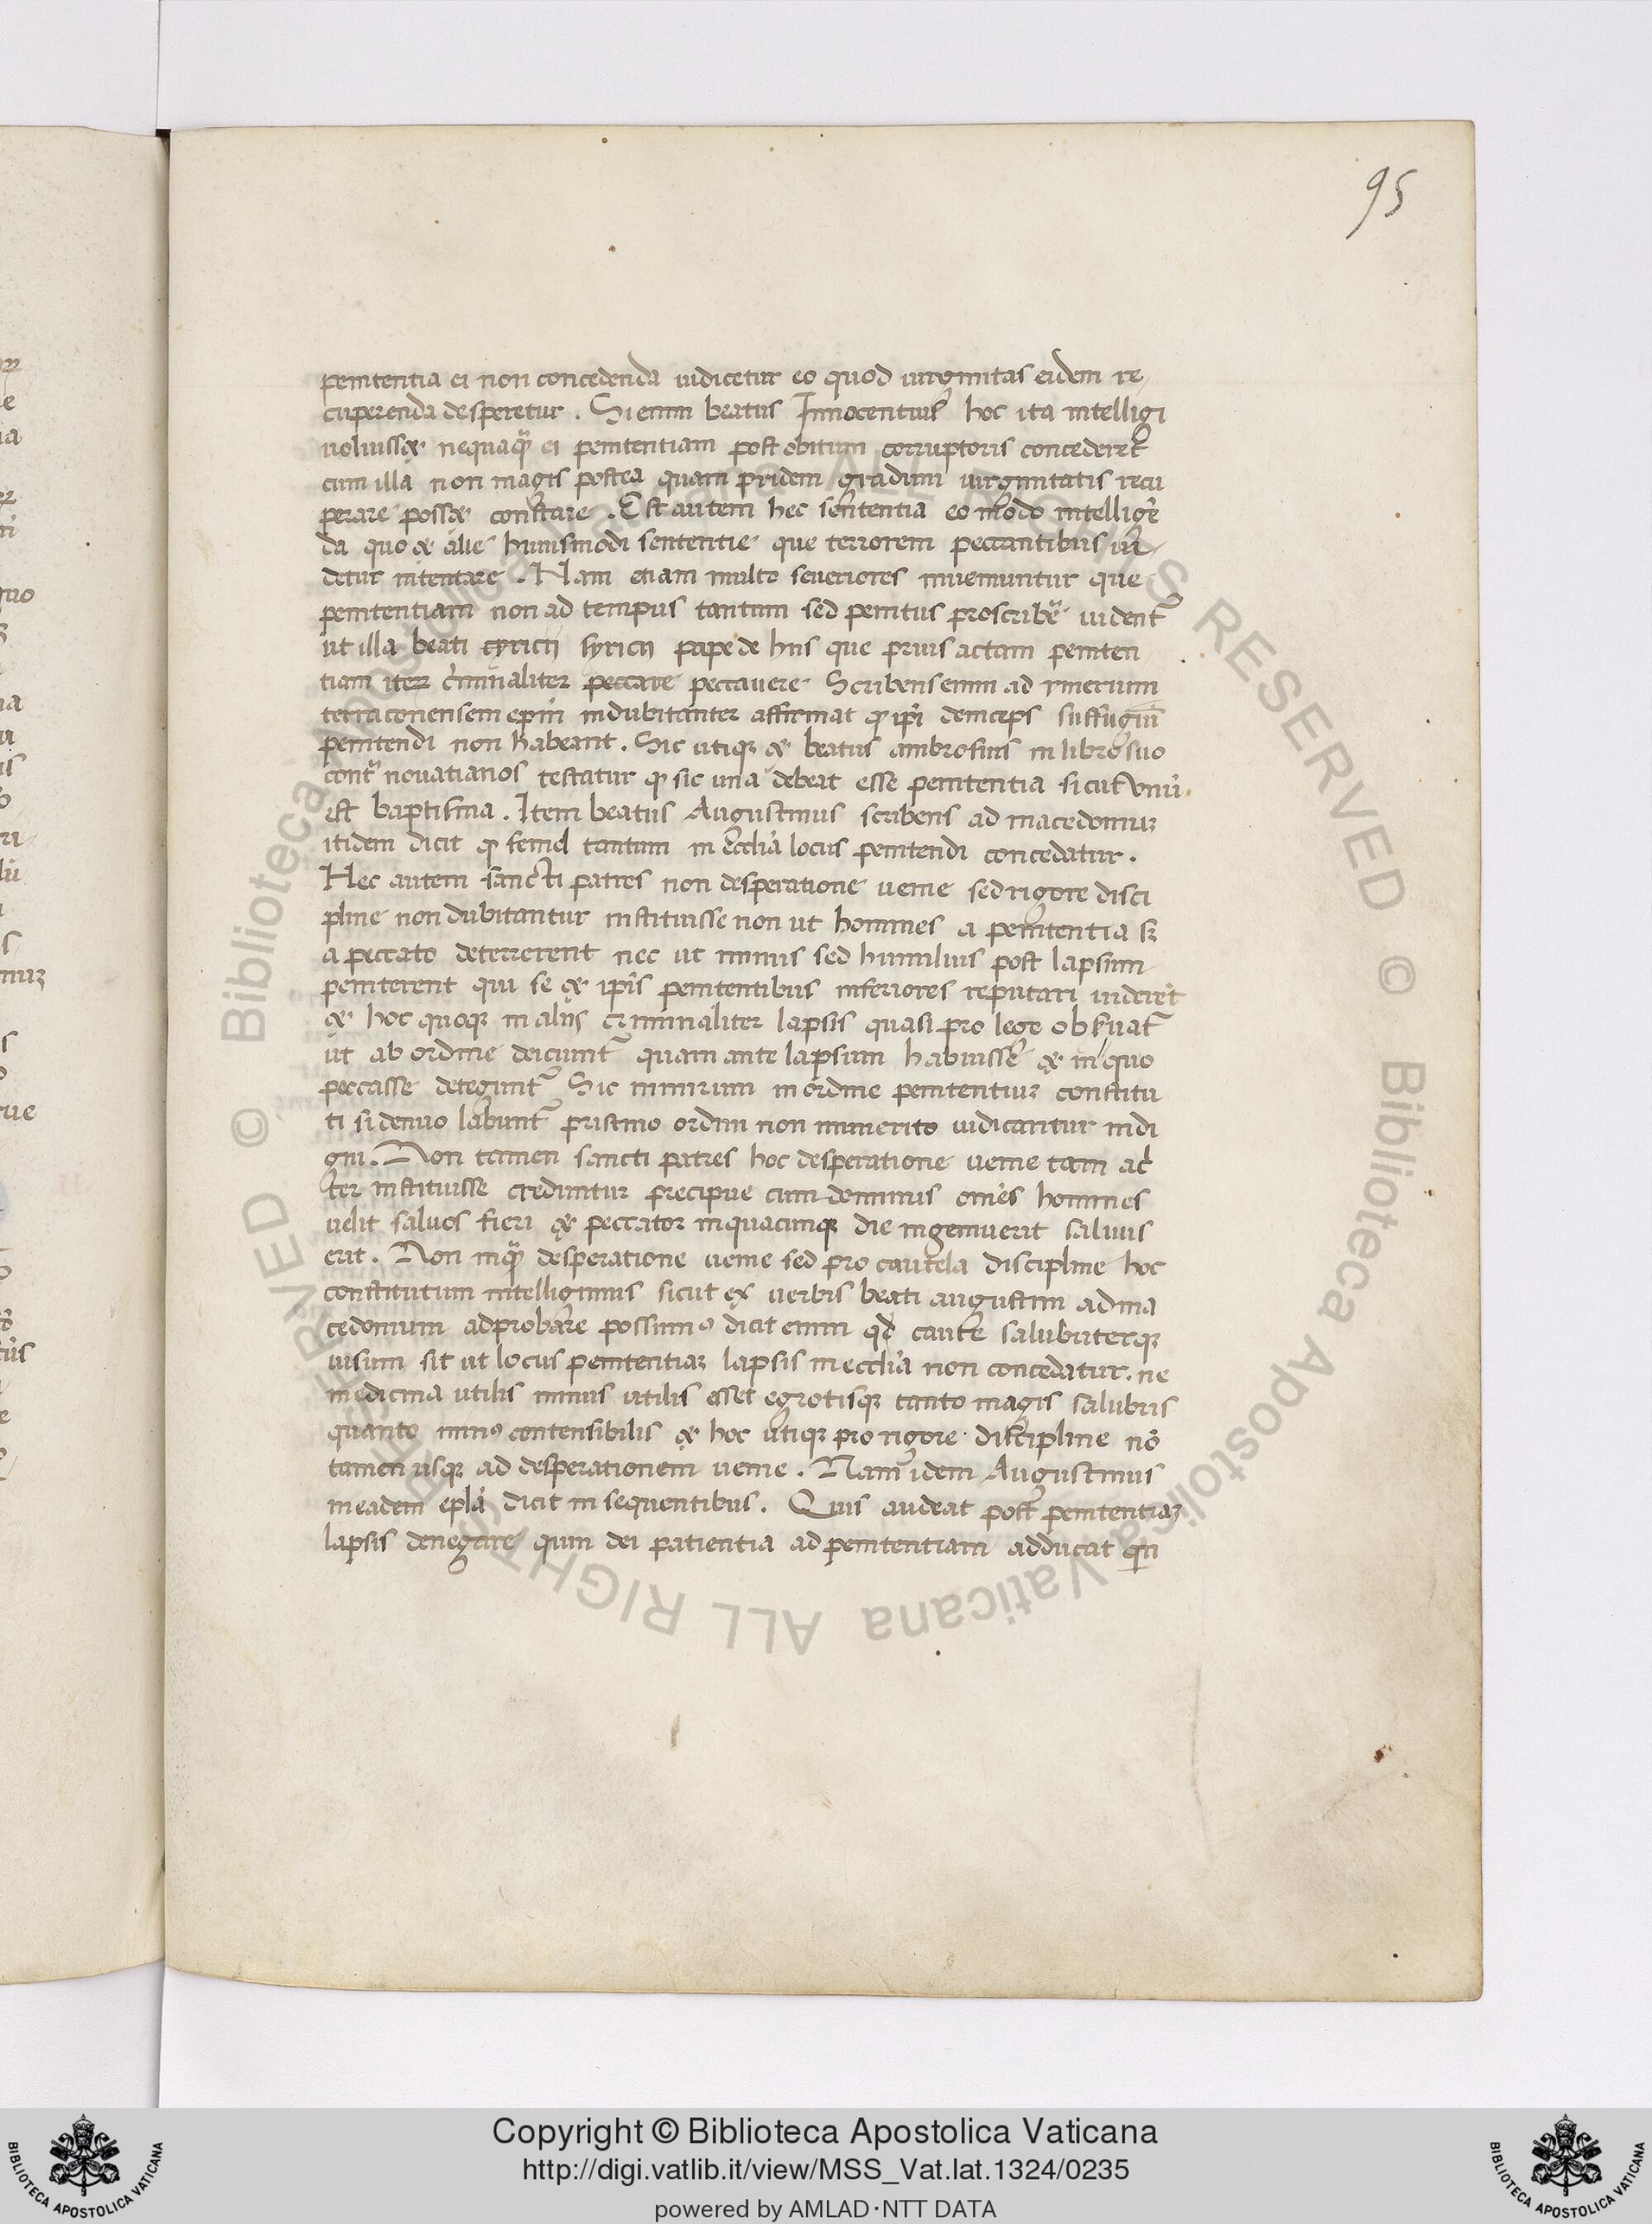 95
penitentia ei non concedenda iudicetur eo quod uirginitas eidem re
cuperenda desperetur. Si enim beatus Innocentius hoc ita intelligi
uoluisset nequaq̃ ei penitentiam post obitum corruptoris concederet
cum illa non magis postea quam pridem gradum uirginitatis recu
perare posset constare. Est autem hec sententia eo modo intelligē
da quo et alie huiusmodi sententie que terrorem peccantibus ui
detur intentare. Nam etiam multo seueriores inueniuntur que
penitentiam non ad tempus tantum sed penitus proscribẽ uident᷑
ut illa beati cyricij syricij pape de hiis que prius actam peniten
tiam iteꝝ c̓minaliter peccare peccauere Scribens enim ad ymerium
terraconensem ep̄m indubitanter affirmat ꝙ ip̄i deinceps suffugiū
penitendi non habeant. Sic utiqꝫ et beatus ambrosius in libro suo
contr̃ nouatianos testatur ꝙ sic una debeat esse penitentia sicut vnū
est baptisma. Item beatus Augustinus scribens ad macedoniuꝫ
itidem dicit ꝙ semel tantum in Eccl̄ia locus penitendi concedatur.
Hec autem sancti patres non desperatione uenie sed rigore disci
pline non dubitantur instituisse non ut homines a penitentia sꝫ
a peccato deterrerent nec ut minus sed humilius post lapsum
peniterent qui se et ip̄is penitentibus inferiores reputari uiderēt
et hoc quoqꝫ in aliis criminaliter lapsis quasi pro lege obẜuat᷑
ut ab ordine deiciunt᷑ quam ante lapsum habuissē et in quo
peccasse detegunt᷑ Sic nimirum in ordine penitentiuꝫ constitu
ti si denuo labunt᷑ pristino ordini non immerito iudicantur indi
gni. Non tamen sancti patres hoc desperatione uenie tam ac̓
ter instituisse creduntur precipue cum dominus om̄es homines
uelit saluos fieri et peccator in quacumqꝫ die ingemuerit saluus
erit. Non inq̃ desperatione uenie sed pro cautela discipline hoc
constitutum intelligimus sicut ex uerbis beati augustini ad ma
cedonium adprobare possumꝰ dicit enim qđ caute salubriterqꝫ
uisum sit ut locus penitentiaꝫ lapsis in eccl̄ia non concedatur. ne
medicina utilis minus utilis esset egrotisqꝫ tanto magis salubris
quanto minꝰ contensibilis et hoc utiqꝫ pro rigore discipline nō
tamen usqꝫ ad desperationem uenie. Nam idem Augustinus
in eadem ep̄la dicit in sequentibus. Quis audeat post penitentiaꝫ
lapsis denegare quin dei patientia ad penitentiam adducat
Copyright © Biblioteca Apostolica Vaticana
http://digi.vatlib.it/view/MSS_Vat.lat.1324/0235
powered by AMLAD·NTT DATA